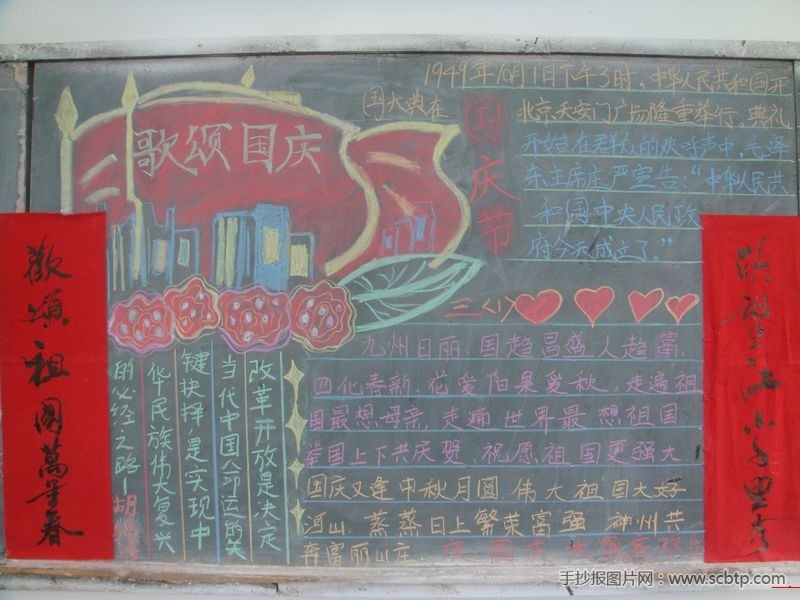 歡頌祖國萬年春
歌颂国庆
国庆节
1949年10月1日下午3时,中华人民共和国开
国大典在 北京天安门广场隆重举行,典礼
开始在群众的欢呼声中,毛泽
东主席庄严宣告:“中华人民共
和国中央人民政
府今天成立了。”
三<1>
九州日丽 国趋昌盛人趋富,
四化春新,花爱伯果爱秋,走遍祖
国最想母亲,走遍世界最想祖国
举国上下共庆贺,祝愿祖国更强大
国庆又逢中秋月圆,伟大祖国大好
河山,蒸蒸日上繁荣富强 神州共
奔富丽山庄.
改革开放是决定
当代中国命运的关
键抉择,是实现中
华民族伟大复兴
的必经之路!胡锦涛
江山千里秀
手抄报图片网:www.scbtp.com